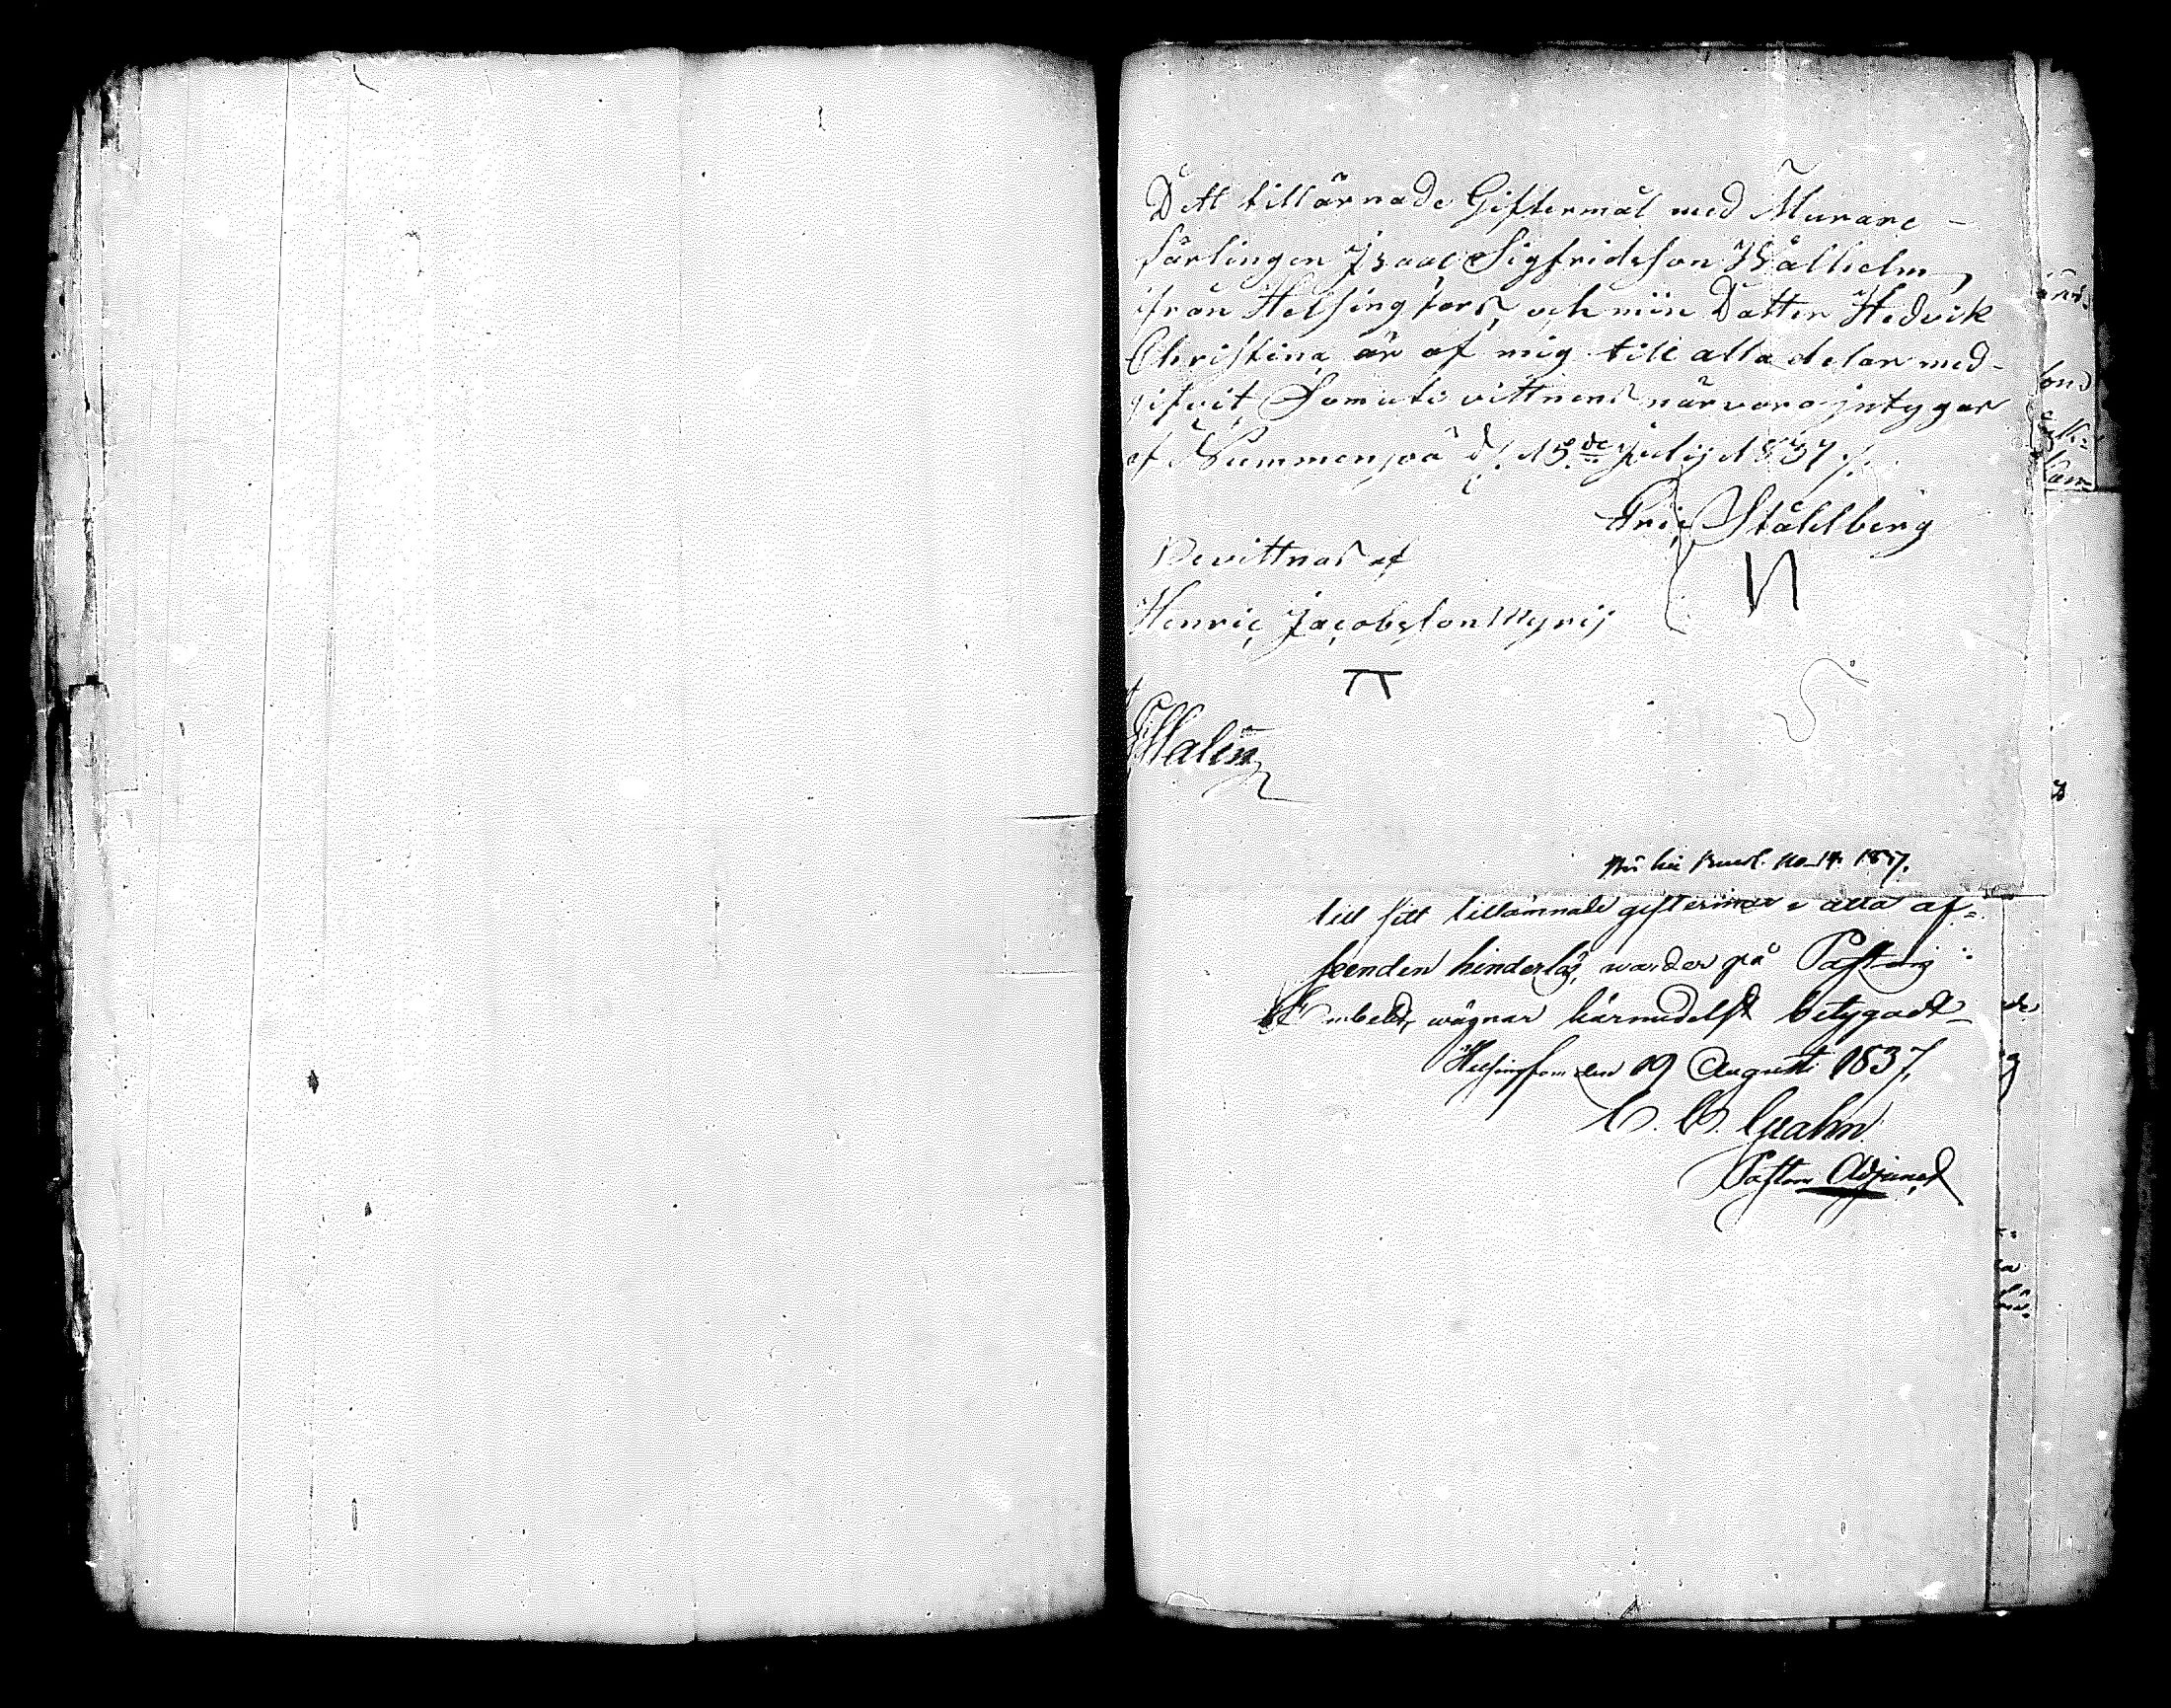 Dett tillärnade Giftermål med Murare-
lärlingen Isaac Sigfridsson Wålhelm,
ifrån Helsingfors, och min Datter Hedvik
Christina är af mig till alla delar med-
gifvit, Som uti vittnens närvaro intygar
af Nummenpää d. 15de Julij 1837.
Eric Ståhlberg
Bevittnas af
Henric Jacobsson Myrij
Malin
No 14 1837.
till sitt tillämnade giftermål i alla af=
seenden hinderlös, warder på Pastors
Embetets wägnar härmedelst betygadt_
Helsingfors den 19 Augusti 1837.
C. C. Grahn
Pastors Adjunct